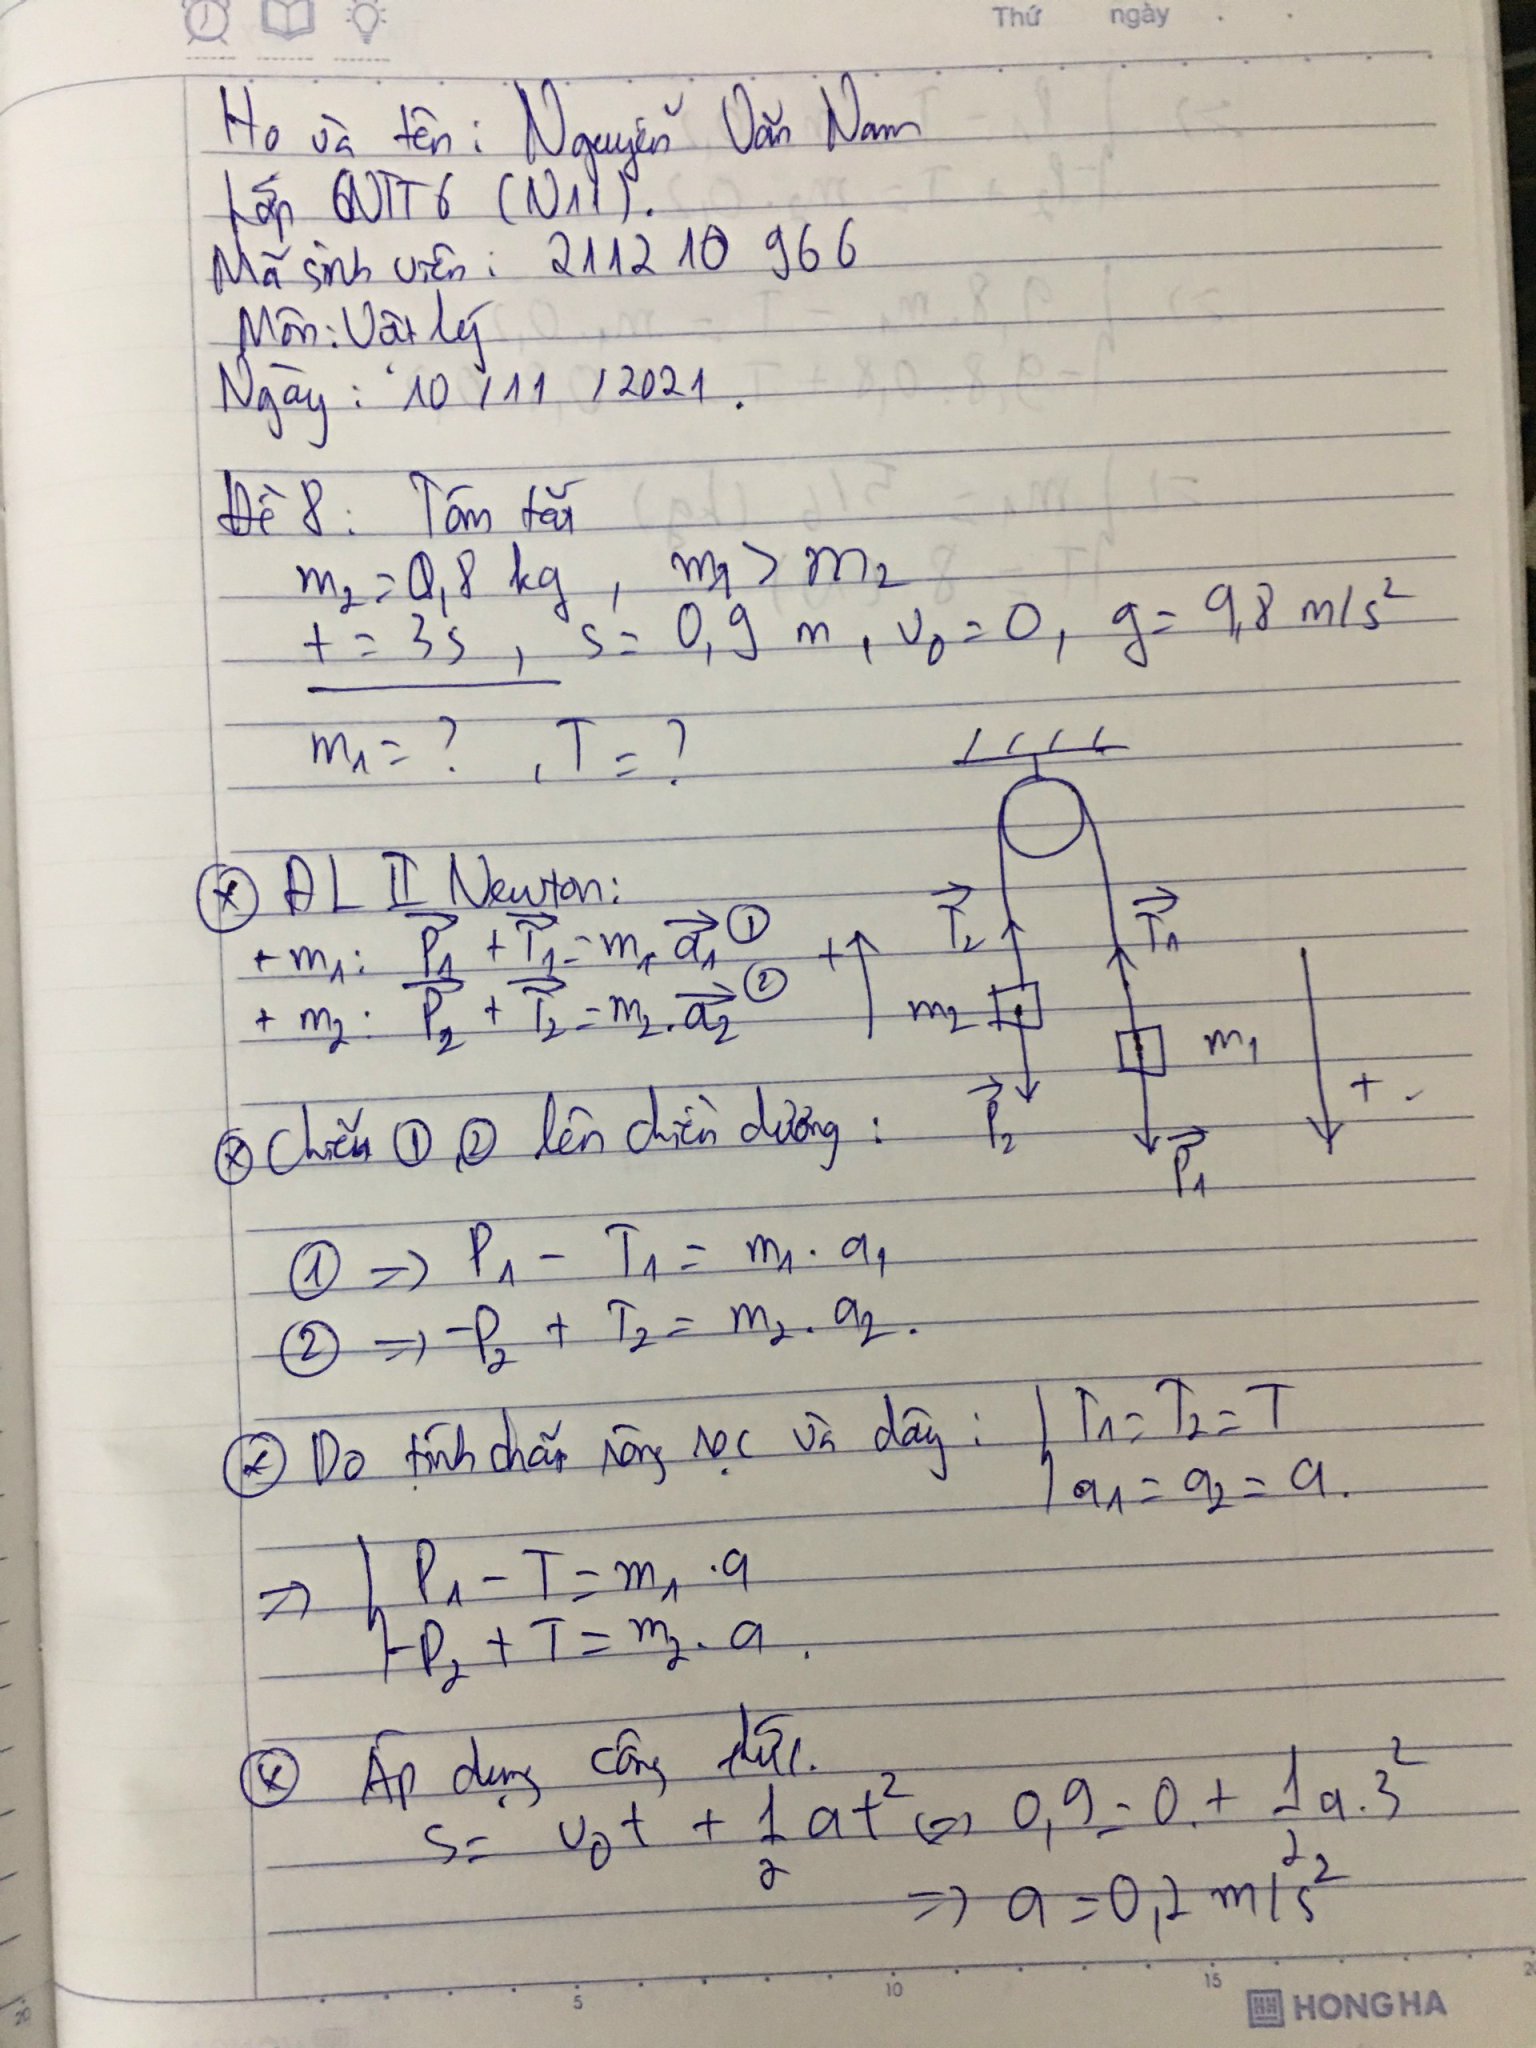 Thứ ngày . .
Họ và tên: Nguyễn Văn Nam
Lớp QNTT6 (N11).
Mã sinh viên: 2112 10 966
Môn: Vật lý
Ngày: 10 / 11 / 2021.
Đề 8: Tóm tắt
m₂ = 0,8 kg, m₁ > m₂
t = 3s, s = 0,9 m, v₀ = 0, g = 9,8 m/s²
m₁ = ? , T = ?
⊛ ĐL II Newton:
+ m₁: P₁→ + T₁→ = m₁.a₁→ ①
+ m₂: P₂→ + T₂→ = m₂.a₂→ ②
+ T₂→ T₁→
m₂ m₁
P₂→ P₁→ +
⊛ Chiếu ①,② lên chiều dương:
① => P₁ - T₁ = m₁.a₁
② => -P₂ + T₂ = m₂.a₂.
⊛ Do tính chất ròng rọc và dây: { T₁ = T₂ = T
{ a₁ = a₂ = a.
=> { P₁ - T = m₁.a
{ -P₂ + T = m₂.a.
⊛ Áp dụng công thức.
s = v₀t + 1/2 at² <=> 0,9 = 0 + 1/2 a.3²
=> a = 0,2 m/s²
5 10 15 20
20
HONG HA